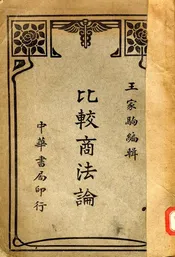 王家駒編輯
比較商法論
中華書局印行